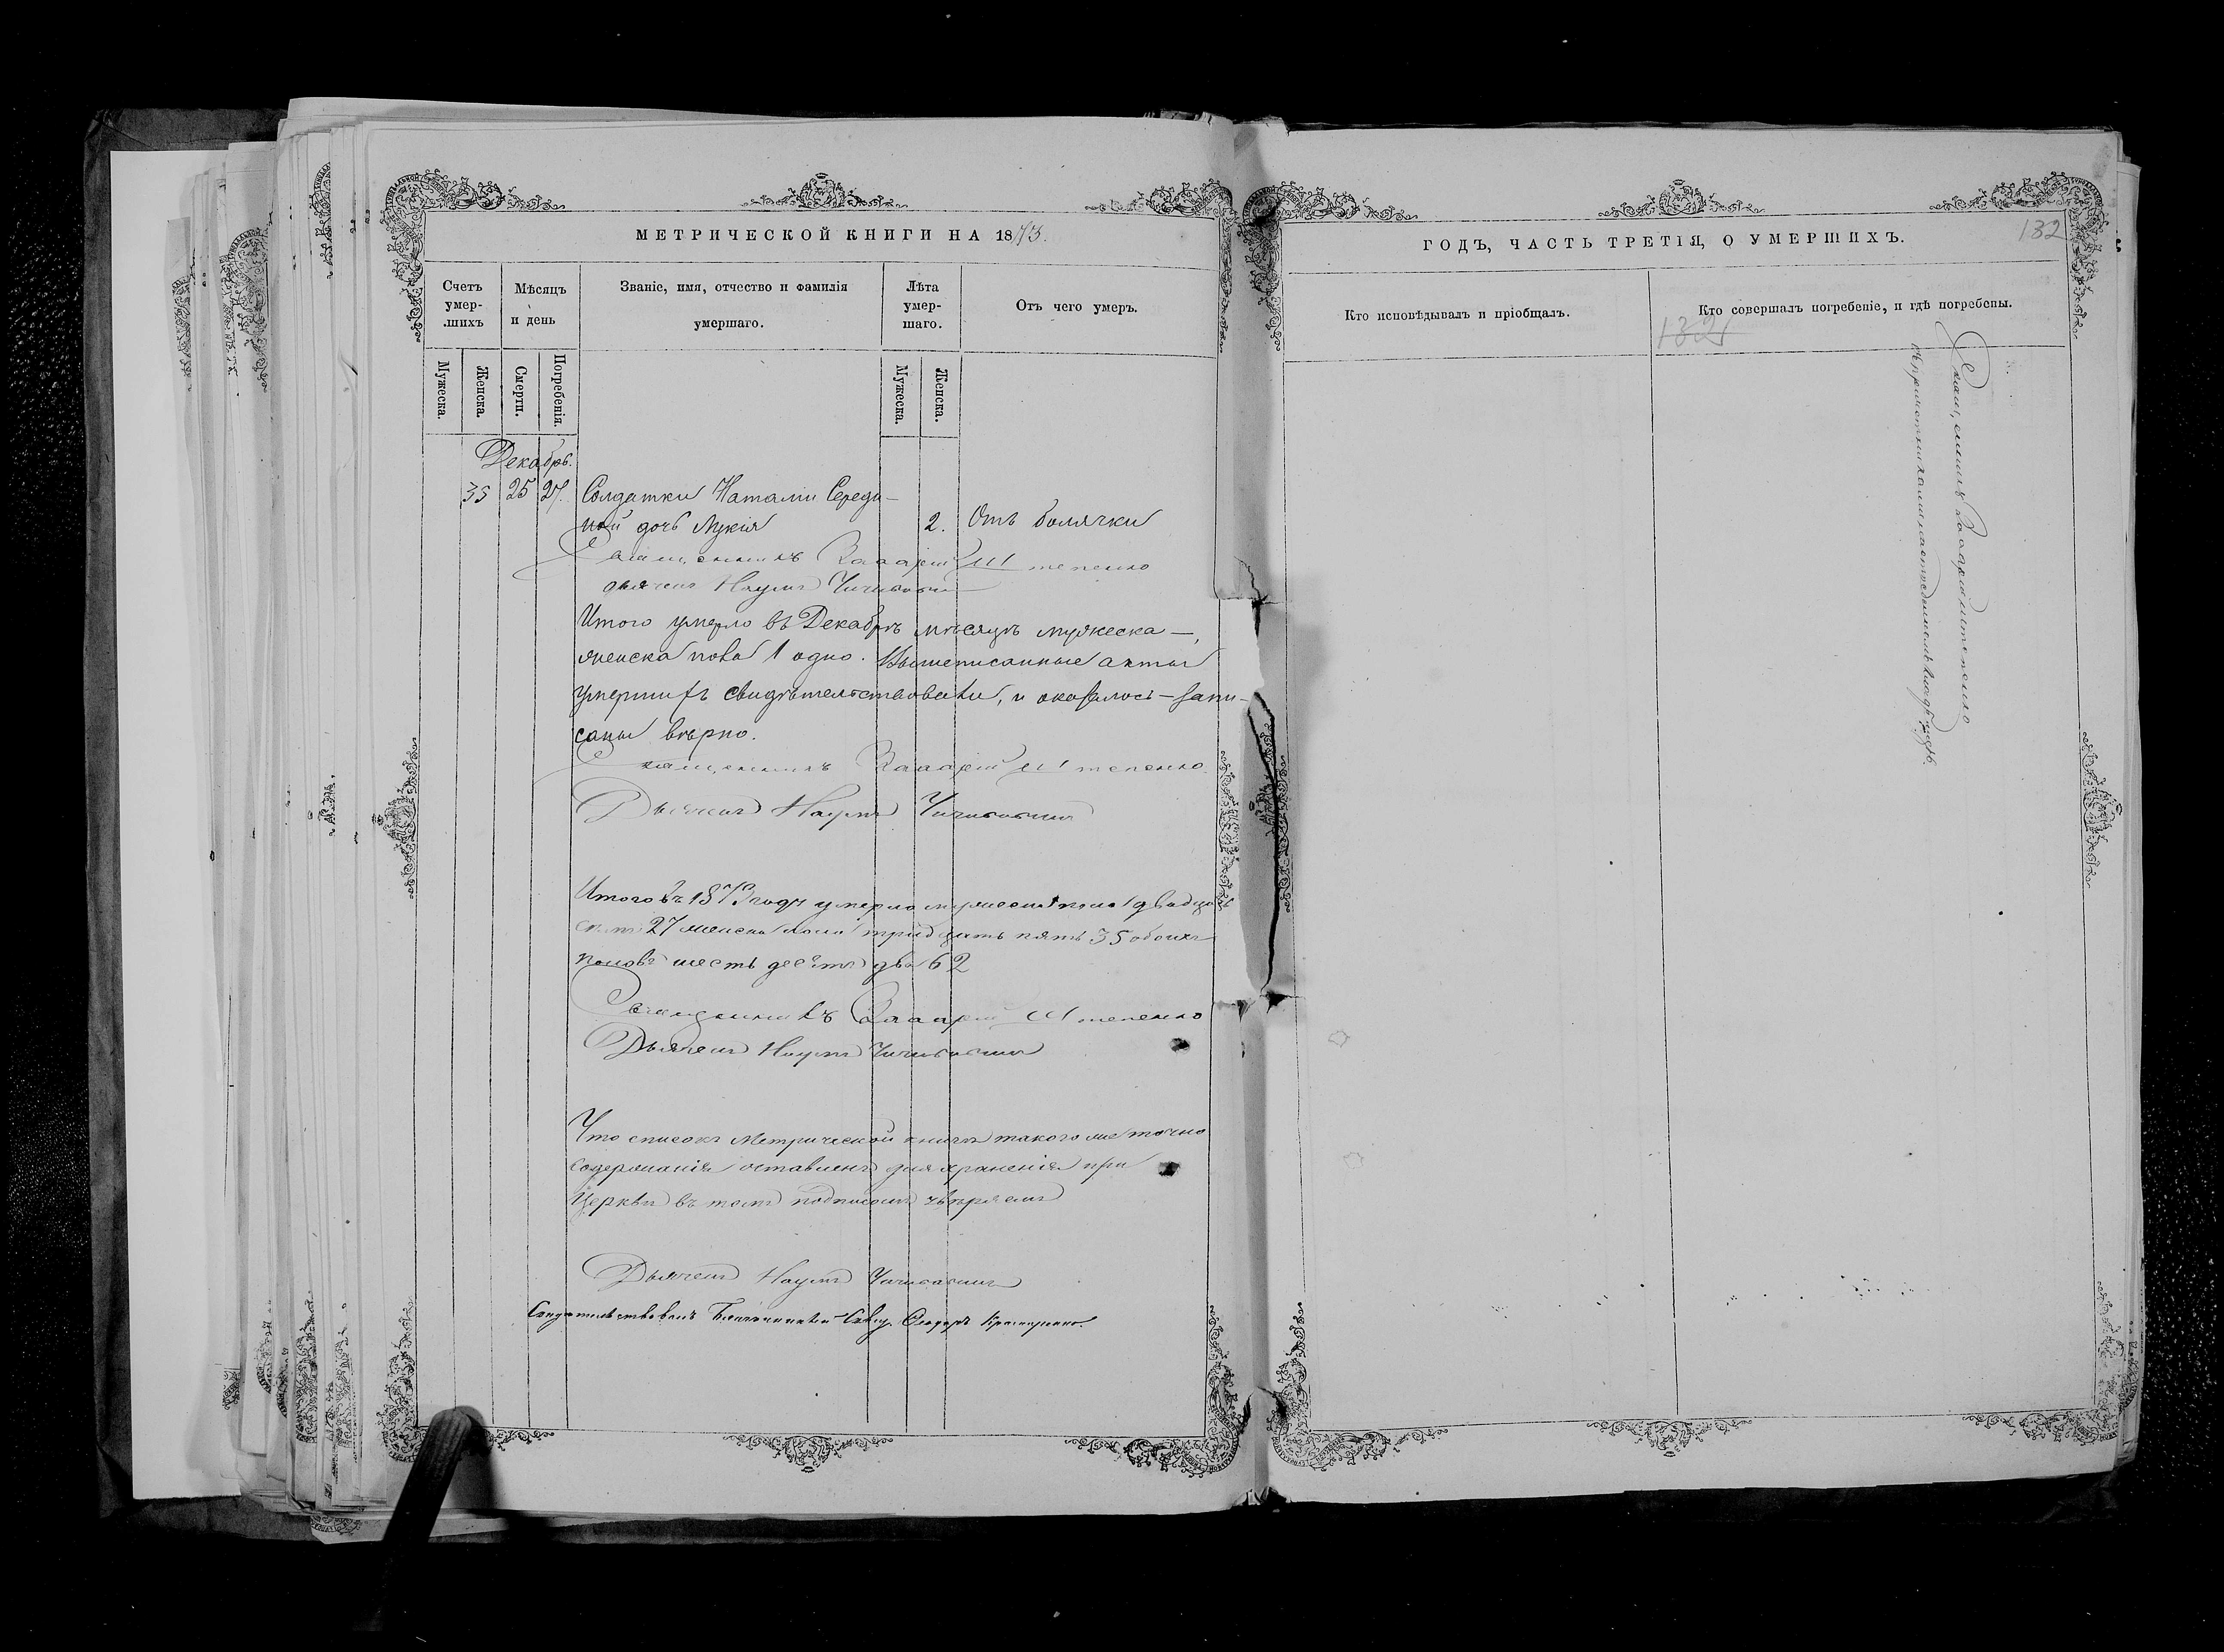 МЕТРИЧЕСКОЙ КНИГИ НА 1873.
Счетъ умер-шихъ
Мѣсяцъ и день
Званіе, имя, отчество и фамилія умершаго.
Лѣта умер-шаго.
Отъ чего умеръ.
Мужеска.
Женска.
Смерти.
Погребенія.
Мужеска.
Женска.
Декабрь.
35 25 27. Солдатки Наталіи Середи-
ной дочь Лукія 2. Отъ болячки
Священникъ Захарій Штепенко
дьячекъ Наумъ
Итого умерло въ Декабрѣ мѣсяцѣ мужеска —,
женска пола 1 одно. Вышеписанные акты
умершихъ свидѣтельствовали, и оказалось – запи-
саны вѣрно.
Священникъ Захарій Штепенко
Дьячекъ Наумъ
Итого въ 1873 году умерло мужеска пола двадца
27 женска пола тридцать пять 35 обоихъ
половъ шесть десятъ два 62
Священникъ Захарій Штепенко
Дьячекъ Наумъ
Что списокъ Метрической книги такого же точно
содержанія оставленъ для храненія при
Церкви въ томъ подписомъ
Дьячекъ Наумъ
Свидѣтельствовалъ Благочинный Свящ. Ѳеодоръ
ГОДЪ, ЧАСТЬ ТРЕТІЯ, О УМЕРШИХЪ.
132
Кто исповѣдывалъ и пріобщалъ.
Кто совершалъ погребеніе, и гдѣ погребены.
132
Священникъ Захарій Штепенко